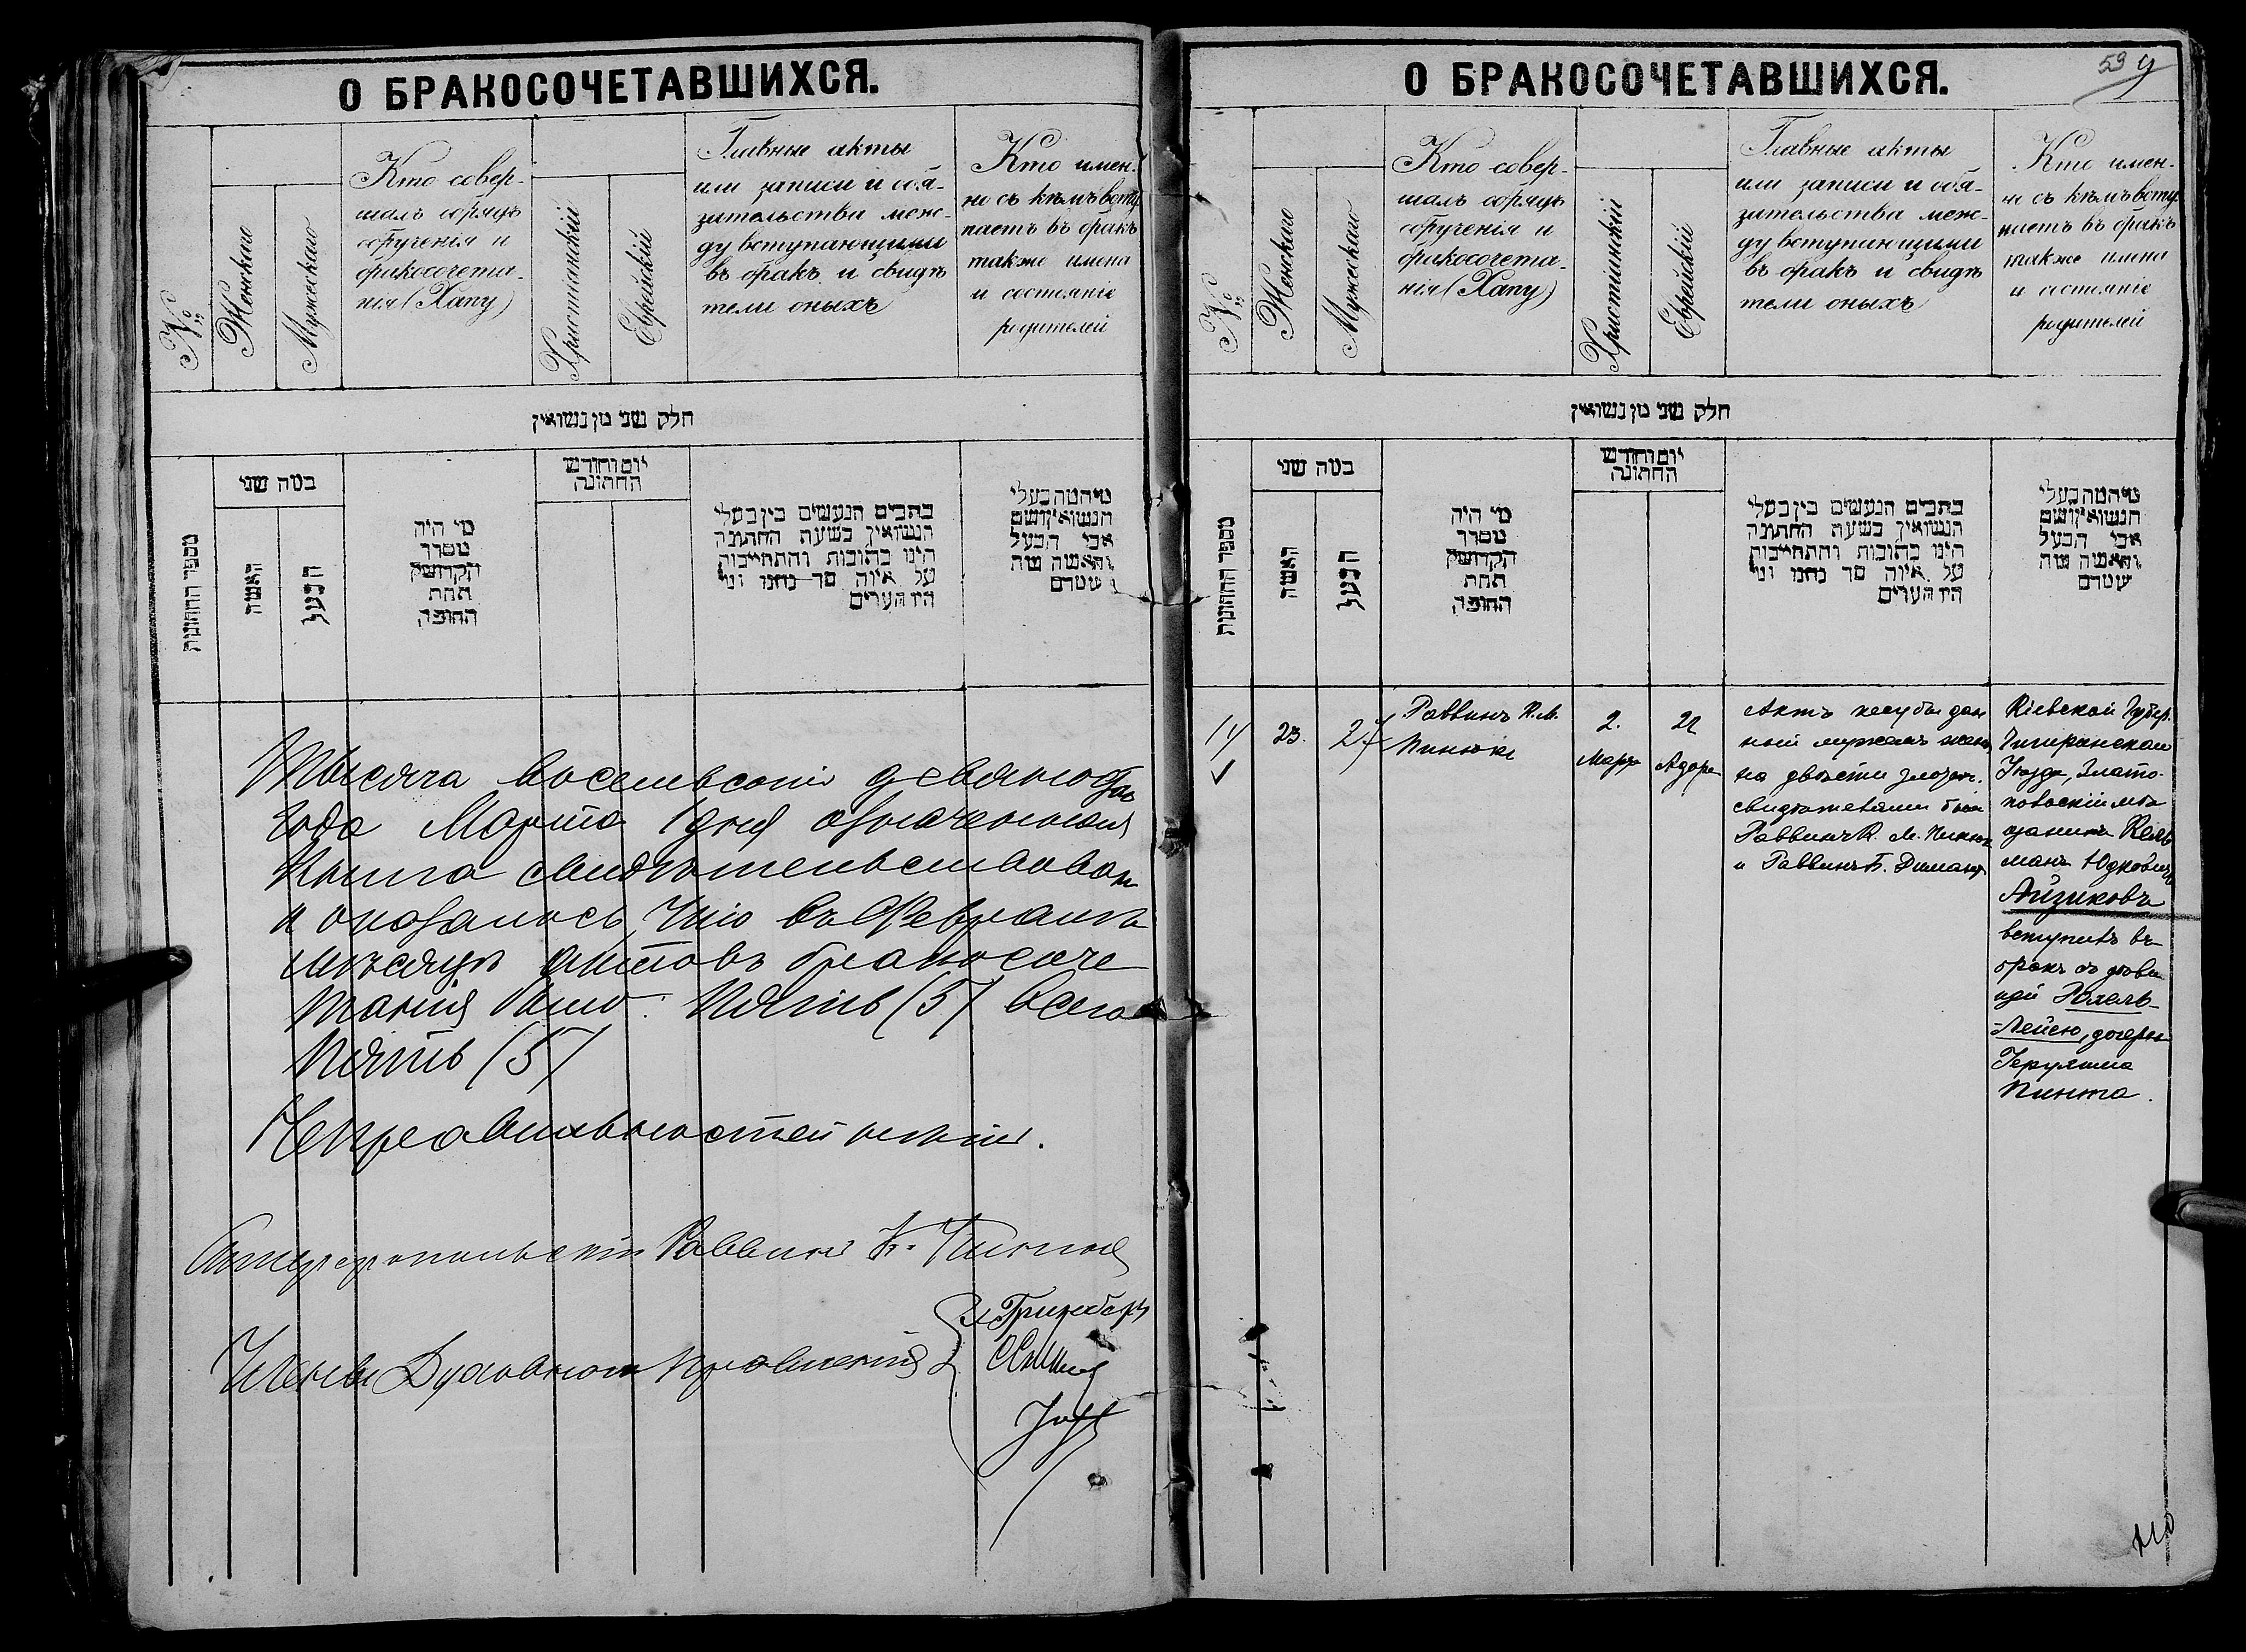 О БРАКОСОЧЕТАВШИХСЯ.
№
Женскаго
Мужескаго
Кто совер-
шалъ обрядъ
обрученія и
бракосочета-
нія (Хапу)
Христіанскій
Еврейскій
Главные акты
или записи и обя-
зательства меж-
ду вступающими
въ бракъ и свидѣ
тели оныхъ
Кто имен-
но съ кѣмъ всту
паетъ въ бракъ
также имена
и состояніе
родителей
חלק שני מן נשואין
מספר החתונות
כמה שני
האשה
הבעל
מי היה
מסדר
הקדושין
תחת
החופה
יום וחודש
החתונה
כתבים הנעשים בין בעלי
הנשואין בשעת החתונה
הינו כתובות והתחייבות
על איזה סך נתנו ומי
היו העדים
מי המה בעלי
הנשואין ושם
אבי הבעל
והאשה מת
שטרם
Тысяча восемьсотъ девяностаго
года Марта 1 дня означенная
Книга свидѣтельствована
и оказалось, что въ Февралѣ
мѣсяцѣ актовъ бракосоче
танія было: Пять (5) всего
Пять (5)
Неправильностей нѣтъ.
Раввинъ К. Пинюкъ
Члены Духовнаго Правленія
Гринберъ
О БРАКОСОЧЕТАВШИХСЯ.
59
№
Женскаго
Мужескаго
Кто совер-
шалъ обрядъ
обрученія и
бракосочета-
нія (Хапу)
Христіанскій
Еврейскій
Главные акты
или записи и обя-
зательства меж-
ду вступающими
въ бракъ и свидѣ
тели оныхъ
Кто имен-
но съ кѣмъ всту
паетъ въ бракъ
также имена
и состояніе
родителей
חלק שני מן נשואין
מספר החתונות
כמה שני
האשה
הבעל
מי היה
מסדר
הקדושין
תחת
החופה
יום וחודש
החתונה
כתבים הנעשים בין בעלי
הנשואין בשעת החתונה
הינו כתובות והתחייבות
על איזה סך נתנו ומי
היו העדים
מי המה בעלי
הנשואין ושם
אבי הבעל
והאשה מת
שטרם
23.
27
Раввинъ К. М.
Пинюкъ
2.
Марта
22
Адора
Актъ кесуба дан
ный мужемъ женѣ
на двѣсти злотых.
свидѣтелями были
Раввинъ К. М. Пинюкъ
и Раввинъ Б. Диманъ
Кіевской Губер.
Чигиринскаго
Уѣзда, Злато-
повоскій мѣ
щанинъ Кель
манъ Юдковичъ
Айзиковъ
вступилъ въ
бракъ съ дѣви
цей Рохель-
-Лейею, дочерью
Герушма
Пинта.
210